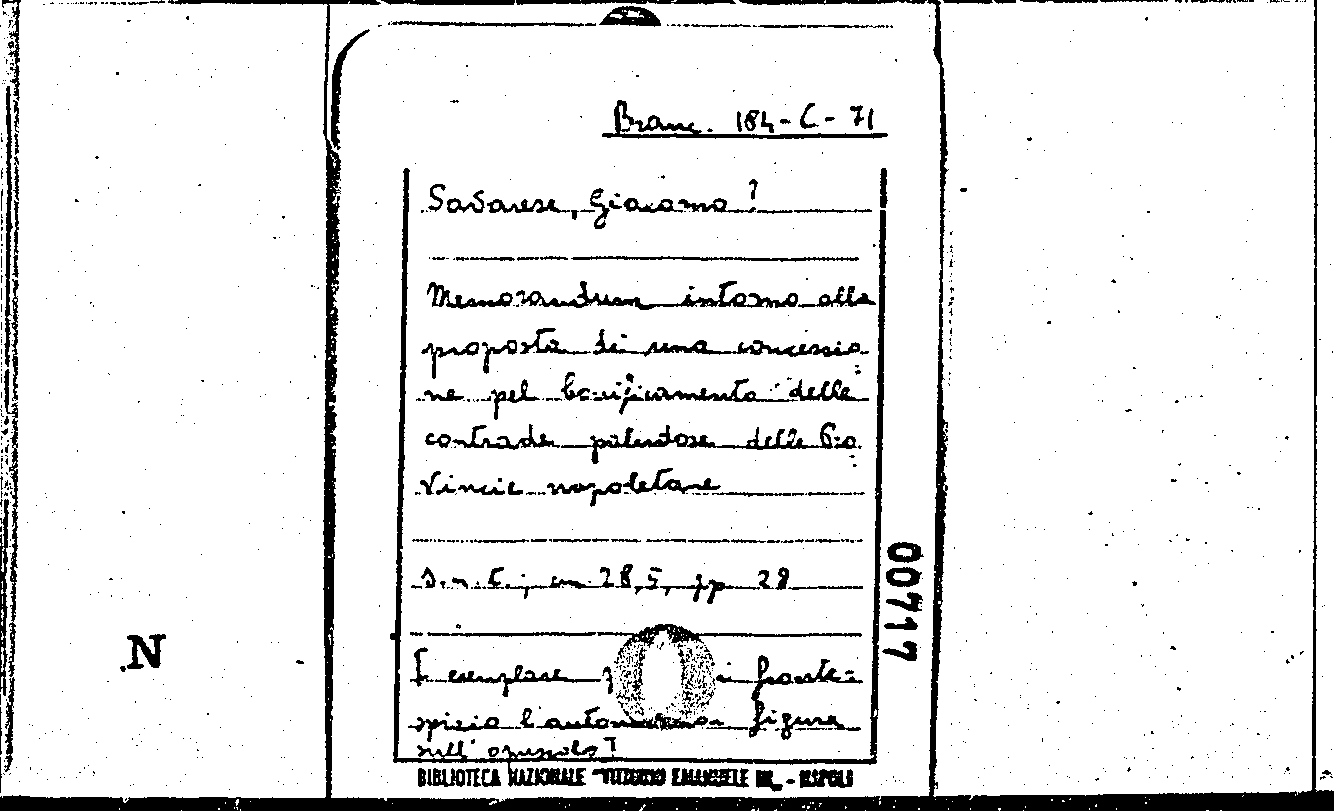 Branc. 184-C-71
Savarese, Giacomo ?
Memorandum intorno alla
proposta di una concessio
ne pel bonificamento delle
contrade paludose delle Pro
vincie napoletane
s.n.t.; cm 28,5, pp 28
esemplare i fronte=
spizio l'autore non figura
sull'opuscolo
BIBLIOTECA NAZIONALE "VITTORIO EMANUELE III" - NAPOLI
00717
N